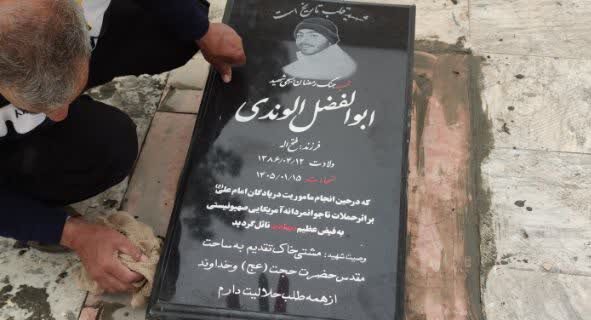 طلب تاریخ است
جنگ رمضان بسیجی شهید
ابوالفضل الوندی
فرزند: فتح اله
ولادت ۱۳۸۶/۰۳/۱۲
شهادت ۱۴۰۵/۰۱/۱۵
که در حین انجام ماموریت در پادگان امام علی(ع)
بر اثر حملات ناجوانمردانه آمریکایی صهیونیستی
به فیض عظیم شهادت نائل گردید
وصیت شهید: مشتی خاک تقدیم به ساحت
مقدس حضرت حجت (عج) و خداوند
از همه طلب حلالیت دارم